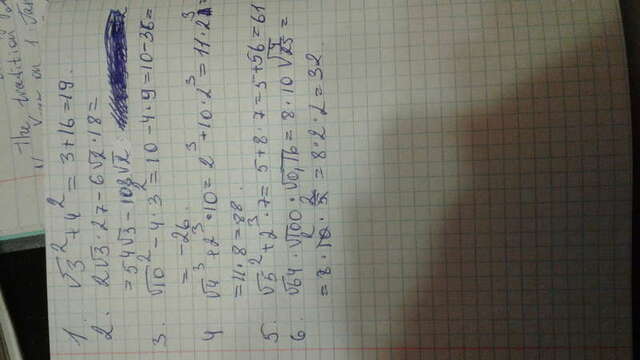 The tradition
on 1 Jan
1. √3² + 4² = 3+16=19.
2. 2√3·27 - 6√2·18=
= 54√3 - 108√2
3. √10² - 4·3² = 10-4·9=10-36=
= -26.
4 √4³ + 2³·10 = 2³+10·2³ = 11·2³=
= 11·8=88.
5. √5² + 2³·7= 5+8·7=5+56=61
6. √64·√100·√0,16 = 8·10 √4/25 =
= 8·10·2/5 = 8·2·2=32